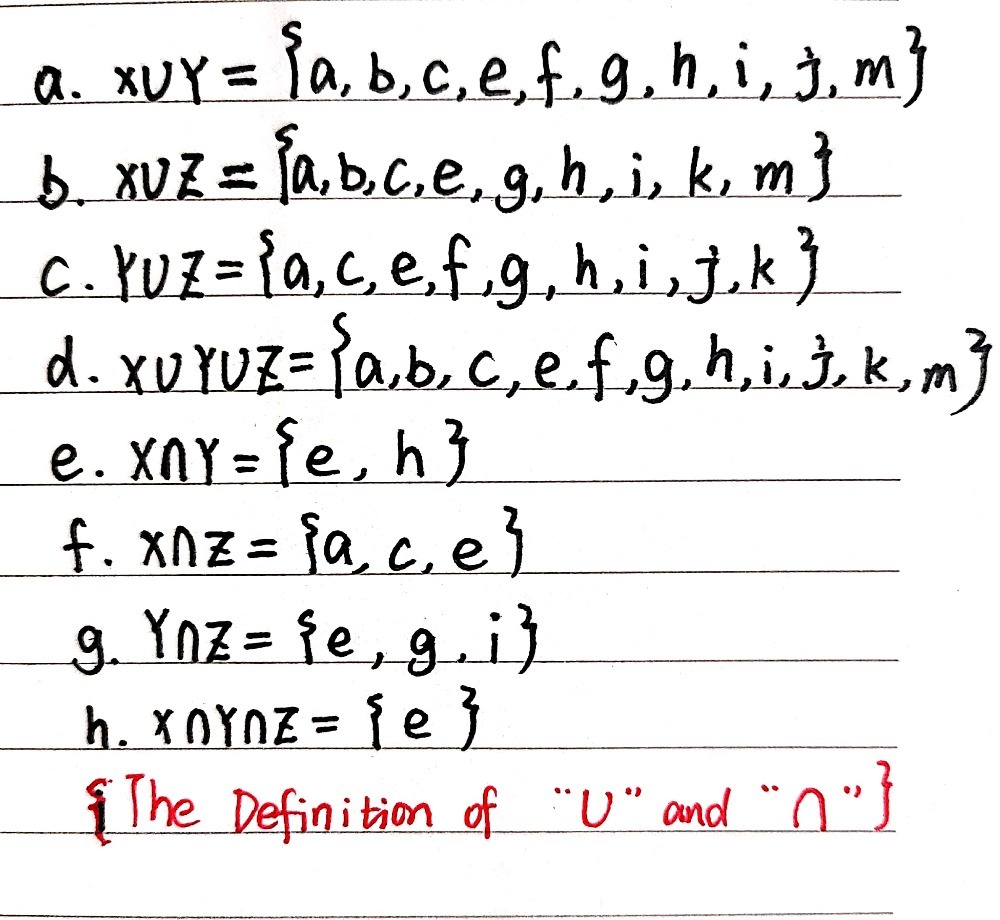 a. X∪Y = {a, b, c, e, f, g, h, i, j, m}
b. X∪Z = {a, b, c, e, g, h, i, k, m}
c. Y∪Z = {a, c, e, f, g, h, i, j, k}
d. X∪Y∪Z = {a, b, c, e, f, g, h, i, j, k, m}
e. X∩Y = {e, h}
f. X∩Z = {a, c, e}
g. Y∩Z = {e, g, i}
h. X∩Y∩Z = {e}
{The Definition of "∪" and "∩"}